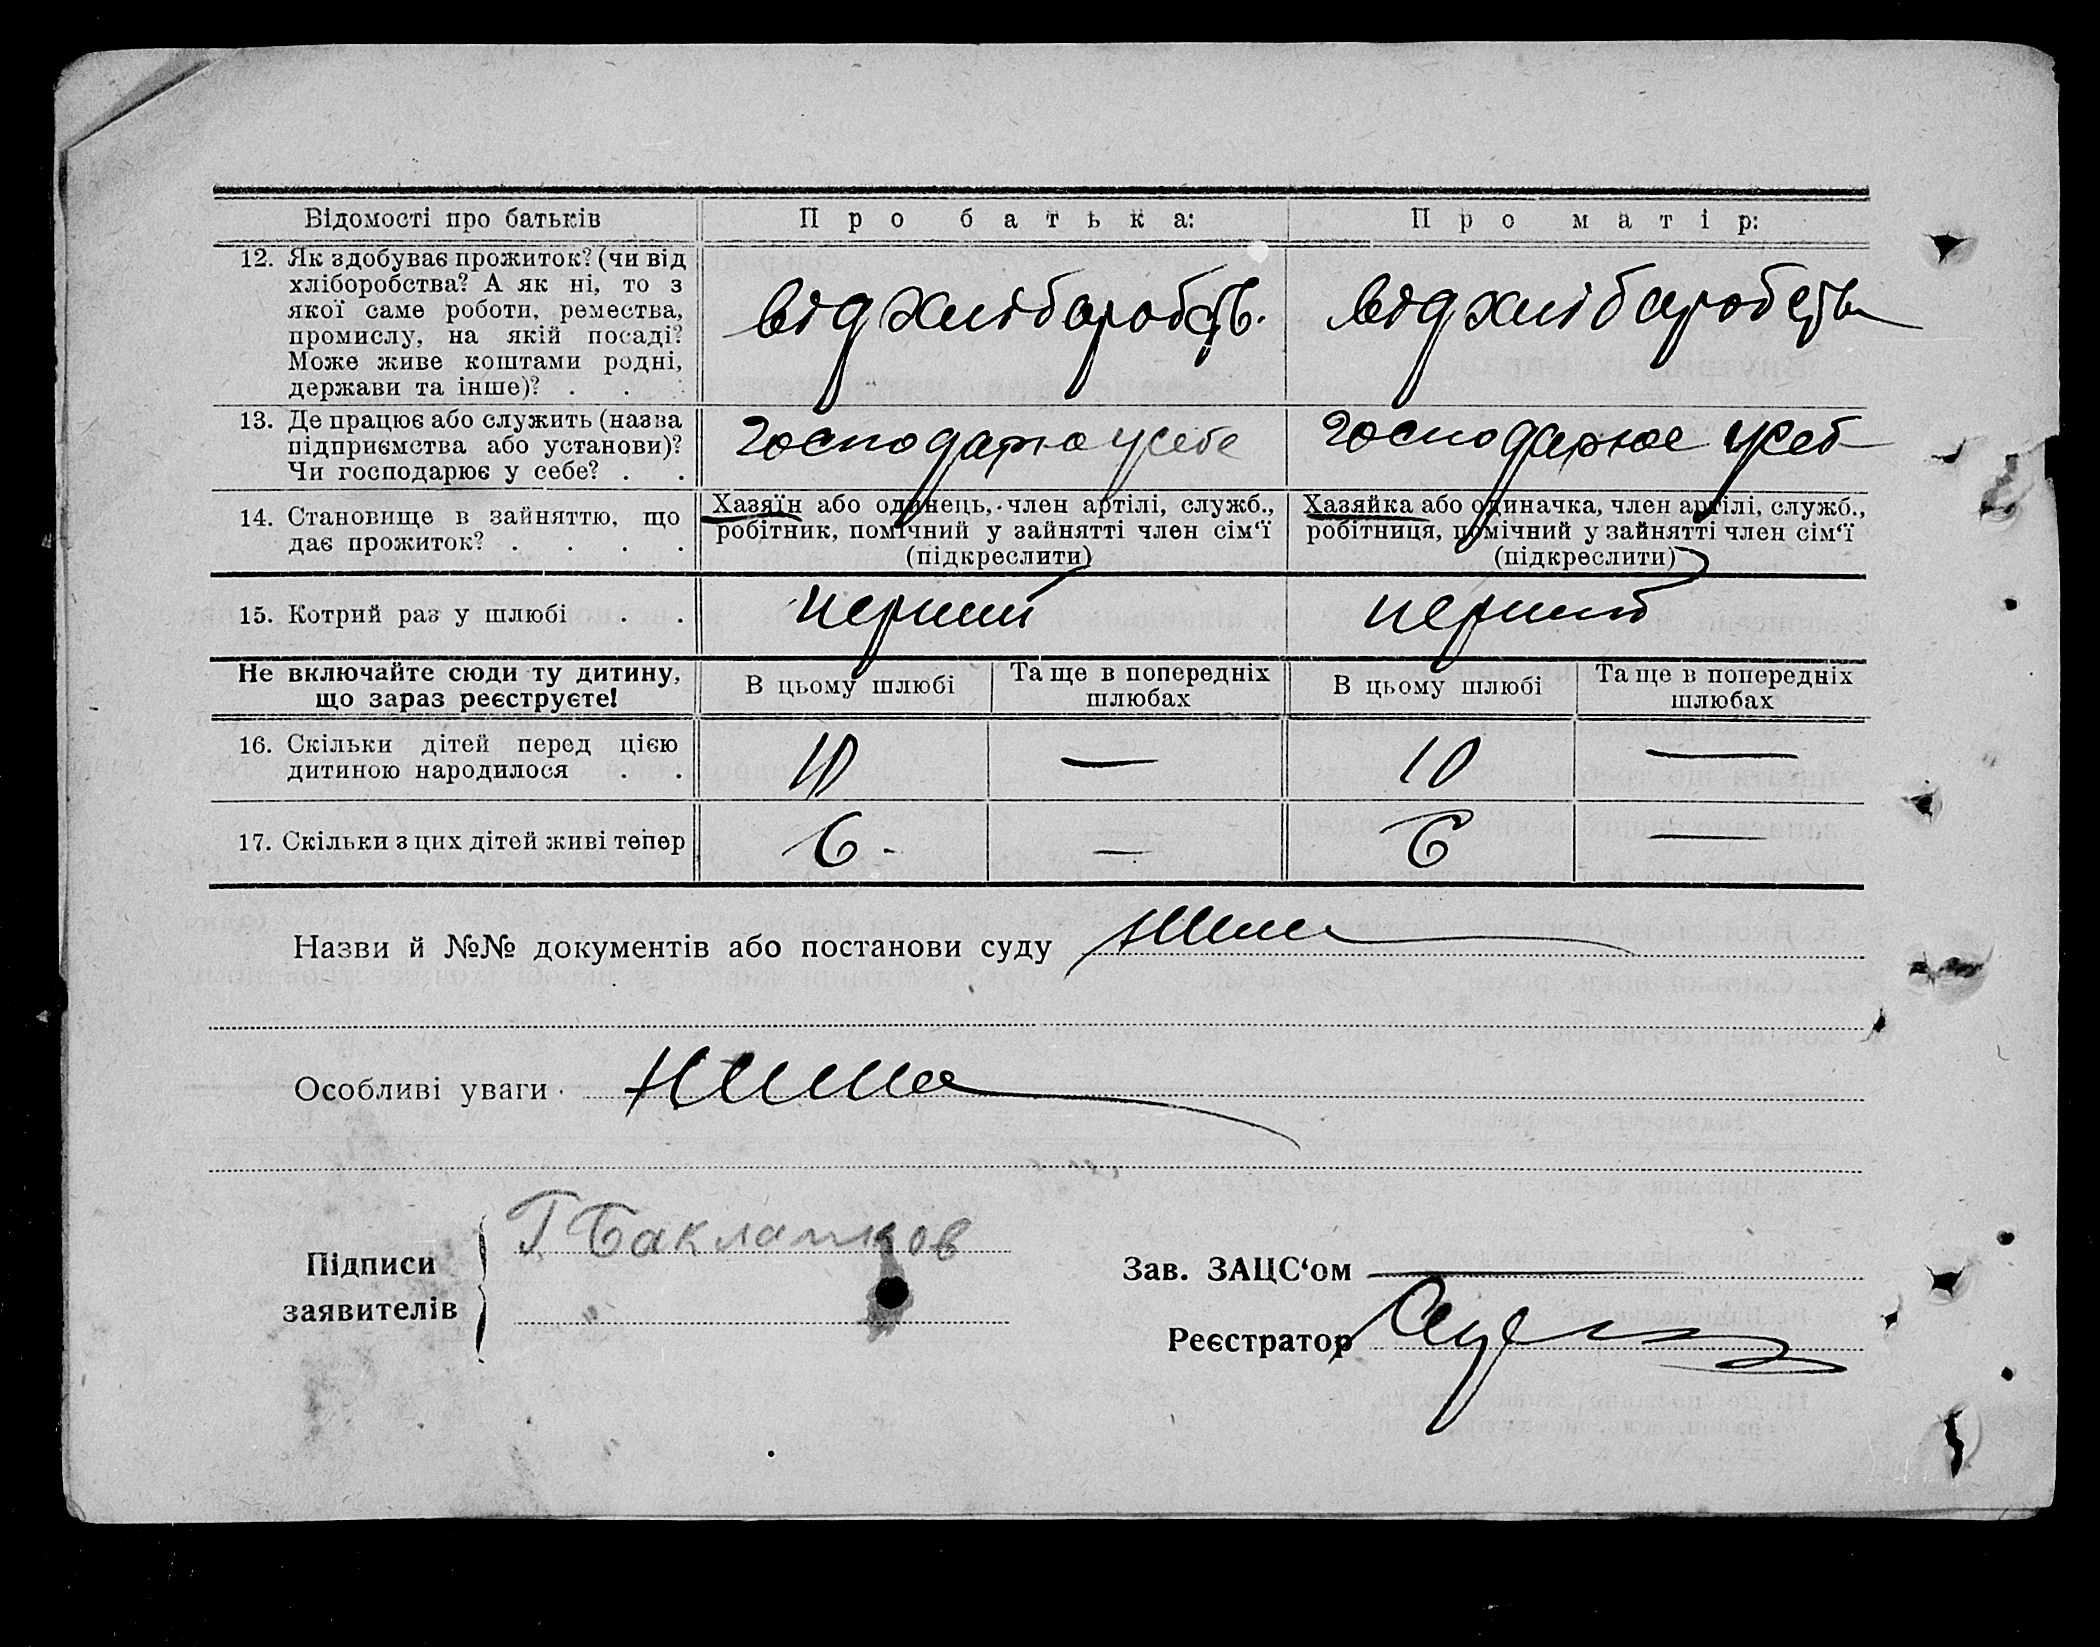 Відомості про батьків
Про батька:
Про матір:
12. Як здобуває прожиток? (чи від
хліборобства? А як ні, то з
якої саме роботи, ремества,
промислу, на якій посаді?
Може живе коштами родні,
держави та інше)? . . .
від хліборобств.
від хліборобства
13. Де працює або служить (назва
підприємства або установи)?
Чи господарює у себе? . .
господарює у себе
господарює у себ
14. Становище в зайняттю, що
дає прожиток? . . . .
Хазяїн або одинець, член артілі, служб.,
робітник, помічний у зайнятті член сім‘ї
(підкреслити)
Хазяйка або одиначка, член артілі, служб.,
робітниця, помічний у зайнятті член сім‘ї
(підкреслити)
15. Котрий раз у шлюбі . .
перший
перший
Не включайте сюди ту дитину,
що зараз реєструєте!
В цьому шлюбі
Та ще в попередніх
шлюбах
В цьому шлюбі
Та ще в попередніх
шлюбах
16. Скільки дітей перед цією
дитиною народилося . .
10
—
10
—
17. Скільки з цих дітей живі тепер
6 -
—
6
—
Назви й №№ документів або постанови суду
Особливі уваги
Підписи
заявителів
Г. Баклашков
Зав. ЗАЦС‘ом
Реєстратор